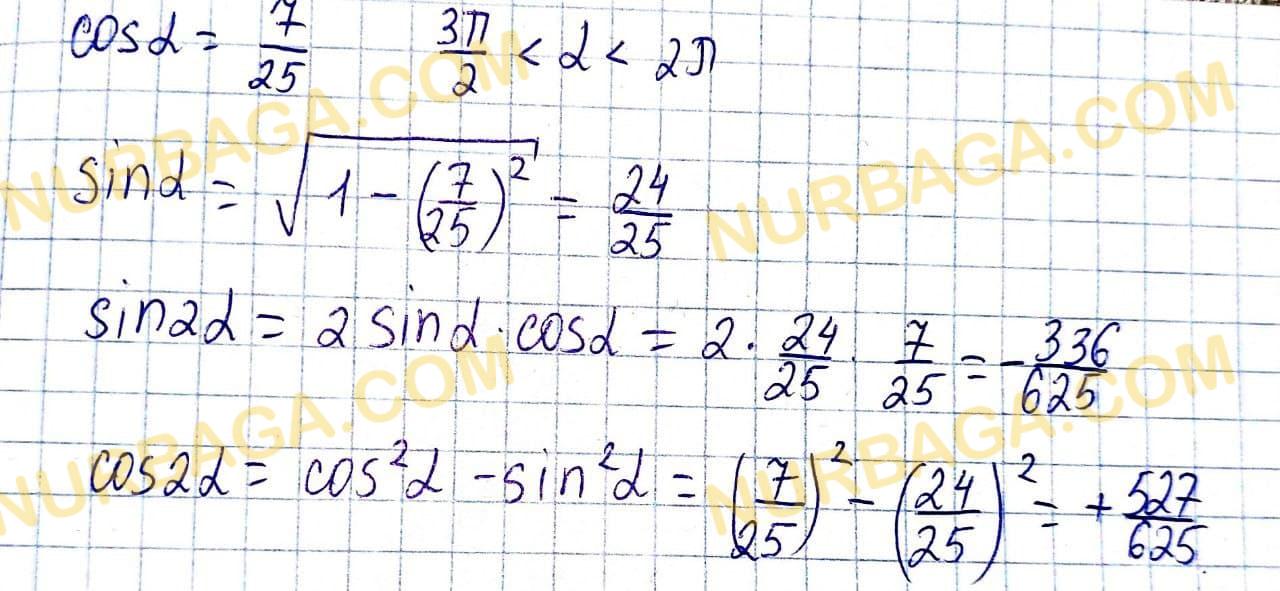 cosα = 7/25 3π/2 < α < 2π
sinα = √(1 - (7/25)²) = 24/25
sin2α = 2 sinα · cosα = 2 · 24/25 · 7/25 = - 336/625
cos2α = cos²α - sin²α = (7/25)² - (24/25)² = + 527/625
NURBAGA.COM
NURBAGA.COM
NURBAGA.COM
NURBAGA.COM